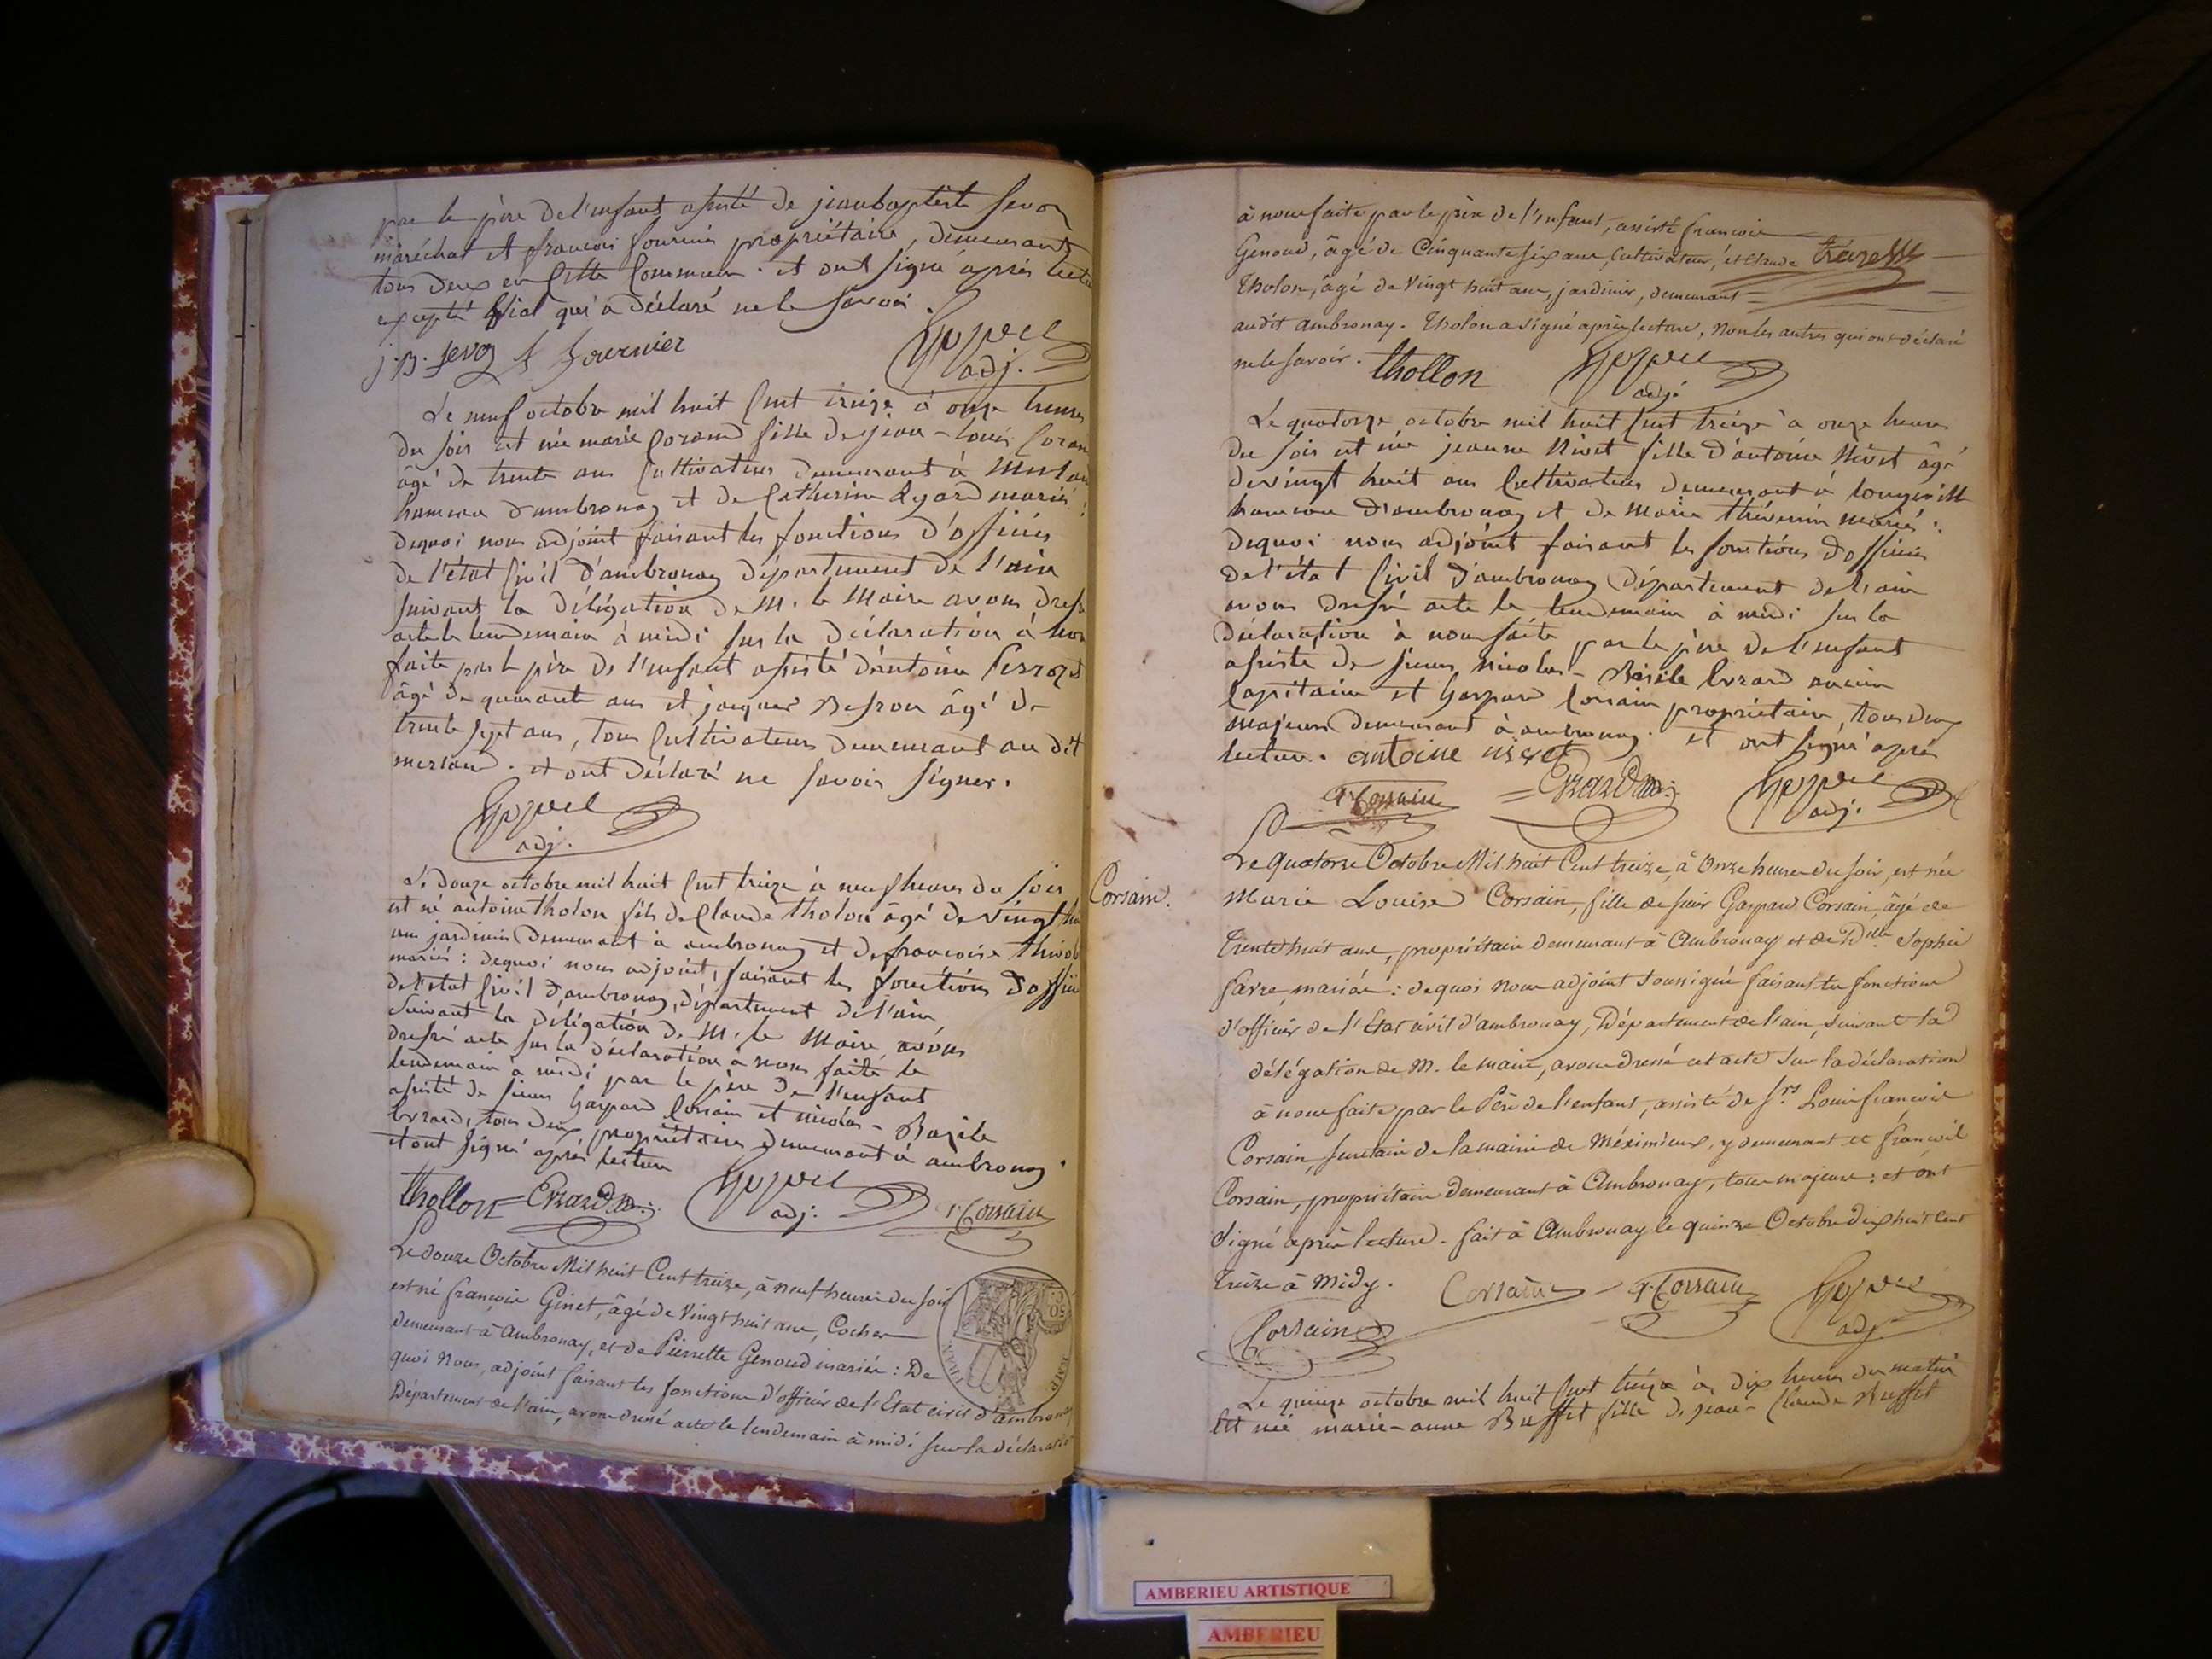 par le père de l'enfant assisté de jeanbaptiste Sevoz
maréchal et francois fournier propriétaire, demeurants
tous deux en cette Commune. et ont signé après lectu
excepté qui a déclaré ne le savoir.
j.B. Sevoz f fournier
adj.
Le neuf octobre mil huit cent treize à onze heures
du soir est née marie Corand fille de jean-louis Coran
âgé de trente ans Cultivateur demeurant à Merlan
hameau d'ambronay et de Catherine mariés :
dequoi nous adjoint faisant les fonctions d'officier
de l'état Civil d'ambronay département de l'ain
suivant la délégation de M. le Maire avons dressé
acte le lendemain à midi sur la déclaration à nous
faite par le père de l'enfant assisté d'antoine
âgé de quarante ans et jacques âgé de
trente sept ans, tous Cultivateurs demeurant au dit
merland. et ont déclaré ne savoir signer.
adj.
Le douze octobre mil huit cent treize à neuf heures du soir
est né antoine tholon fils de Claude tholon âgé de vingt hu
ans jardinier demeurant à ambronay et de francoise
mariés : dequoi nous adjoint, faisant les fonctions d'offici
de l'état Civil d'ambronay, département de l'ain
suivant la délégation de M. le Maire avons
dressé acte sur la déclaration à nous faite le
lendemain à midi par le père de l'enfant
assisté de sieurs Gaspard Corsain et nicolas - Bazile
Evrard, tous deux propriétaires demeurant à ambronay.
et ont signé après lecture
thollon Evrard adj. G. Corsain
Le douze Octobre Mil huit Cent treize, à neuf heures du soir
est né françois Ginet, âgé de Vingt huit ans, Cocher
demeurant à Ambronay, et de Pierrette Genoud mariés : De
quoi Nous, adjoint faisant les fonctions d'officier de l'Etat civil d'ambronay
Département de l'ain, avons dressé acte le lendemain à midi sur la déclaration
à nous faite par le père de l'enfant, assisté francois
Genoud, âgé de Cinquante six ans, Cultivateur, et Claude
Tholon, âgé de Vingt huit ans, jardinier, demeurant
audit ambronay. Tholon a signé après lecture, non les autres qui ont déclaré
ne le savoir. thollon
adj.
Le quatorze octobre mil huit cent treize à onze heures
du soir est née jeanne Nivet fille d'antoine Nivet âgé
de vingt huit ans Cultivateur demeurant à longeville
hameau d'ambronay et de Marie thévenin mariés :
dequoi nous adjoint faisant les fonctions d'officier
de l'état Civil d'ambronay département de l'ain
avons dressé acte le lendemain à midi sur la
déclaration à nous faite par le père de l'enfant
assisté de sieurs nicolas - Basile Evrard ancien
Capitaine et Gaspard Corsain propriétaire, tous deux
majeurs demeurant à ambronay. et ont signé après
lecture. antoine nivet
G. Corsain Evrard adj.
Corsain.
Le quatorze Octobre Mil huit Cent treize, à Onze heures du soir, est née
Marie Louise Corsain, fille de sieur Gaspard Corsain, âgé de
trente huit ans, propriétaire demeurant à Ambronay et de Dlle Sophie
favre, mariés : dequoi Nous adjoint soussigné faisant les fonctions
d'officier de l'Etat civil d'ambronay, Département de l'ain, suivant la
délégation de M. le maire, avons dressé cet acte sur la déclaration
à nous faite par le Père de l'enfant, assisté de Srs Louis françois
Corsain, secrétaire de la mairie de Méximieux, y demeurant et françois
Corsain, propriétaire demeurant à Ambronay, tous majeurs : et ont
signé après lecture. fait à Ambronay le quinze Octobre dix huit cent
treize à Midy. Corsain G. Corsain
Corsain adj.
Le quinze octobre mil huit cent treize à dix heures du matin
est née marie-anne Buffet fille de jean-Claude Buffet
AMBERIEU ARTISTIQUE
AMBERIEU